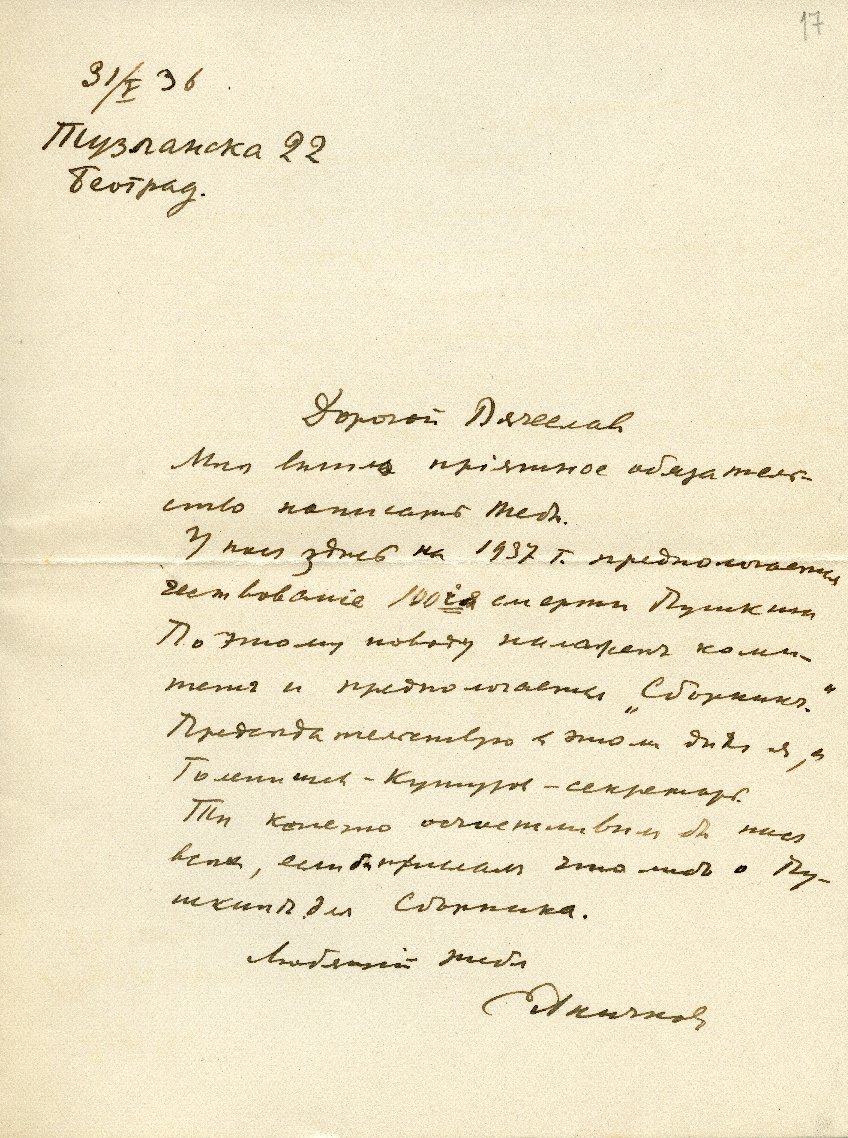 17
31/V 36.
Тузланска 22
Београд.
Дорогой Вячеслав
Мнѣ выпало пріятное обязатель-
ство написать тебѣ.
У насъ здѣсь на 1937 г. предполагается
чествованіе 100ія смерти Пушкина
По этому поводу налаженъ коми-
тетъ и предполагается „Сборникъ."
Предсѣдательствую в этом дѣлѣ я, а
Голенищев-Кутузов - секретарь.
Ты конечно осчастливил бы насъ
всѣхъ, если бы прислалъ что либо о Пу-
шкинѣ для Сборника.
Любящій тебя
ЕАничков